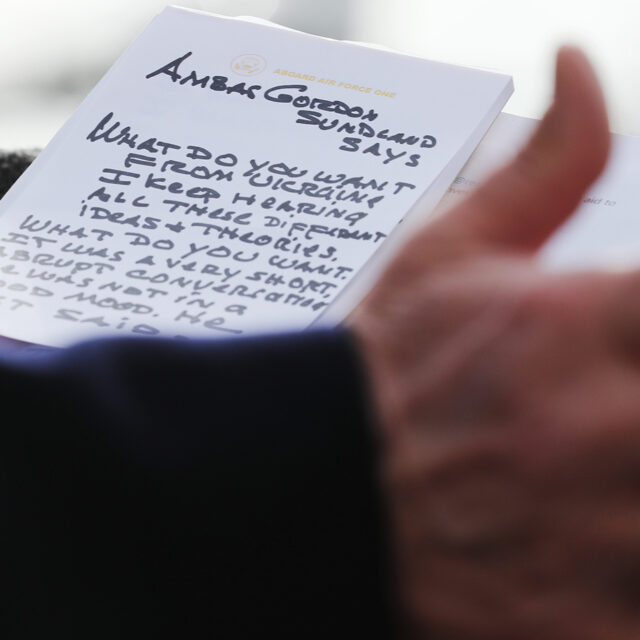 ABOARD AIR FORCE ONE
AMBAS GORDON
SUNDLAND
SAYS
WHAT DO YOU WANT
FROM UKRAINE
I KEEP HEARING
ALL THESE DIFFERENT
IDEAS + THEORIES.
WHAT DO YOU WANT.
IT WAS A VERY SHORT
ABRUPT CONVERSATION
WAS NOT IN A
MOOD. HE
SAID
aid to